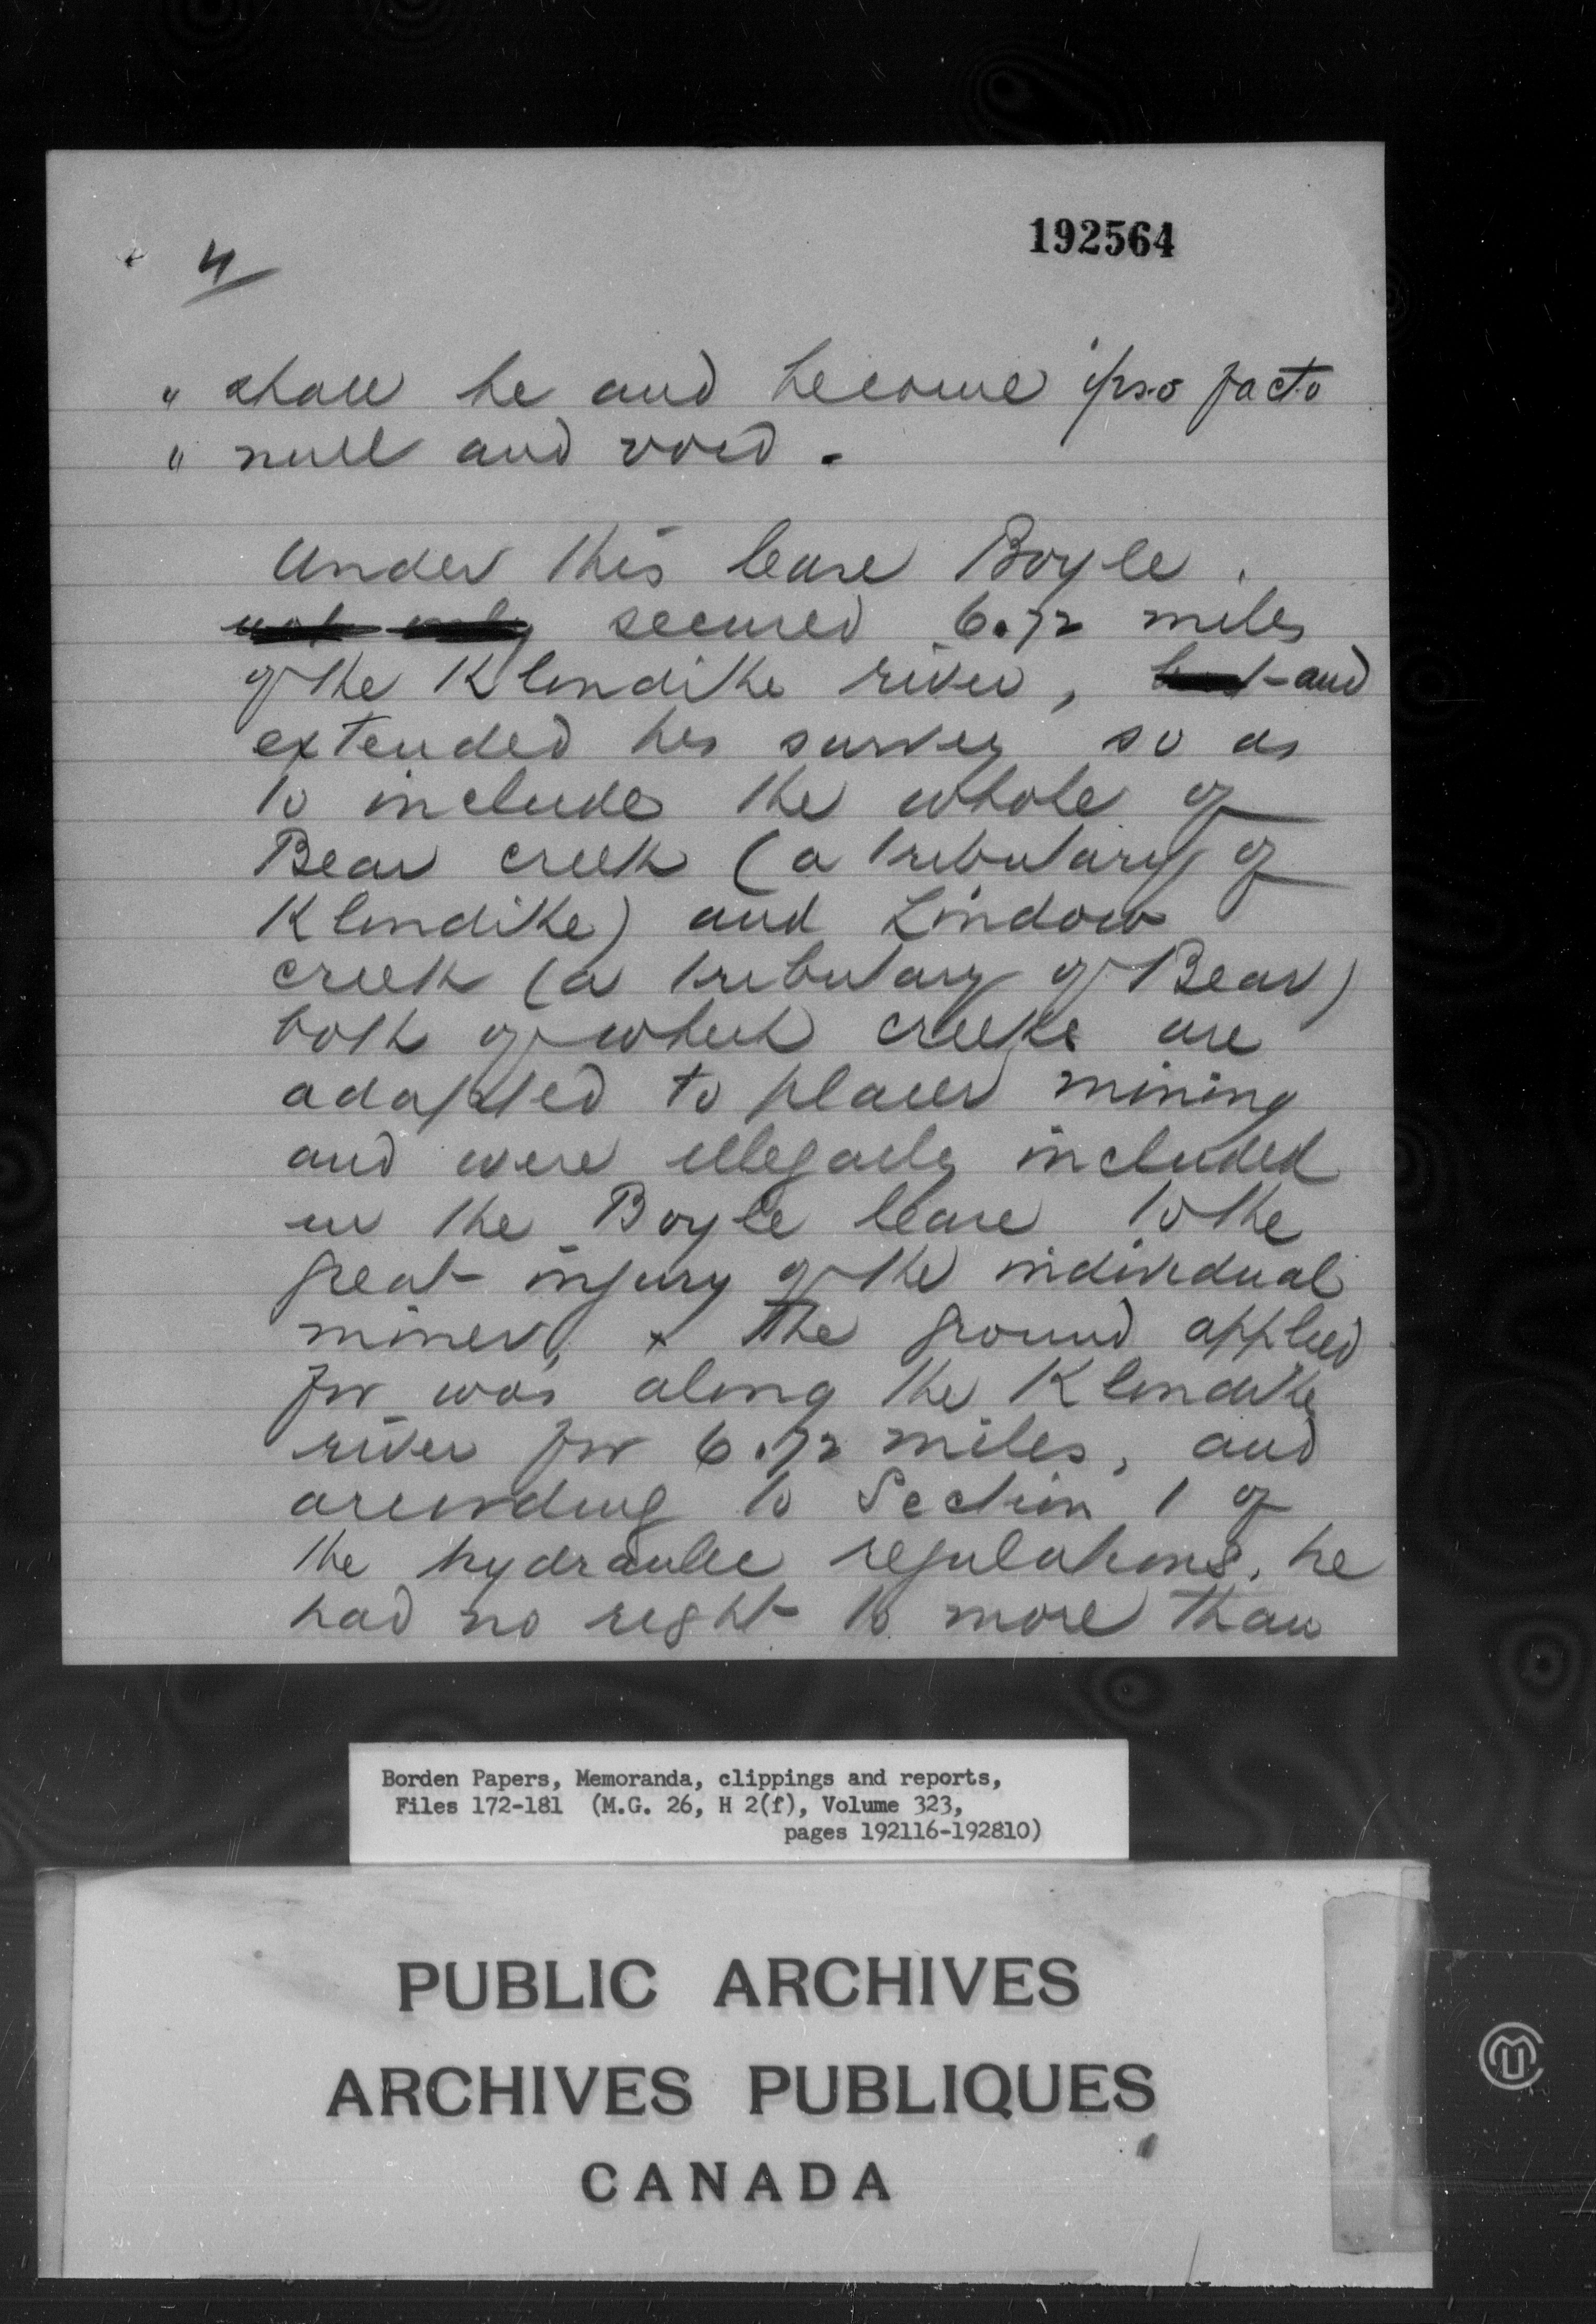 4
192564
" shall be and become ipso facto
" null and void.
Under this lease Boyle
not only secured 6.72 miles
of the Klondike river, but and
extended his survey so as
to include the whole of
Bear creek (a tributary of
Klondike) and Lindow
creek (a tributary of Bear)
both of which creeks are
adapted to placer mining
and were illegally included
in the Boyle lease to the
great injury of the individual
miner, x The ground applied
for was along the Klondike
river for 6.72 miles, and
according to Section 1 of
the hydraulic regulations, he
had no right to more than
Borden Papers, Memoranda, clippings and reports,
Files 172-181 (M.G. 26, H 2(f), Volume 323,
pages 192116-192810)
PUBLIC ARCHIVES
ARCHIVES PUBLIQUES
CANADA